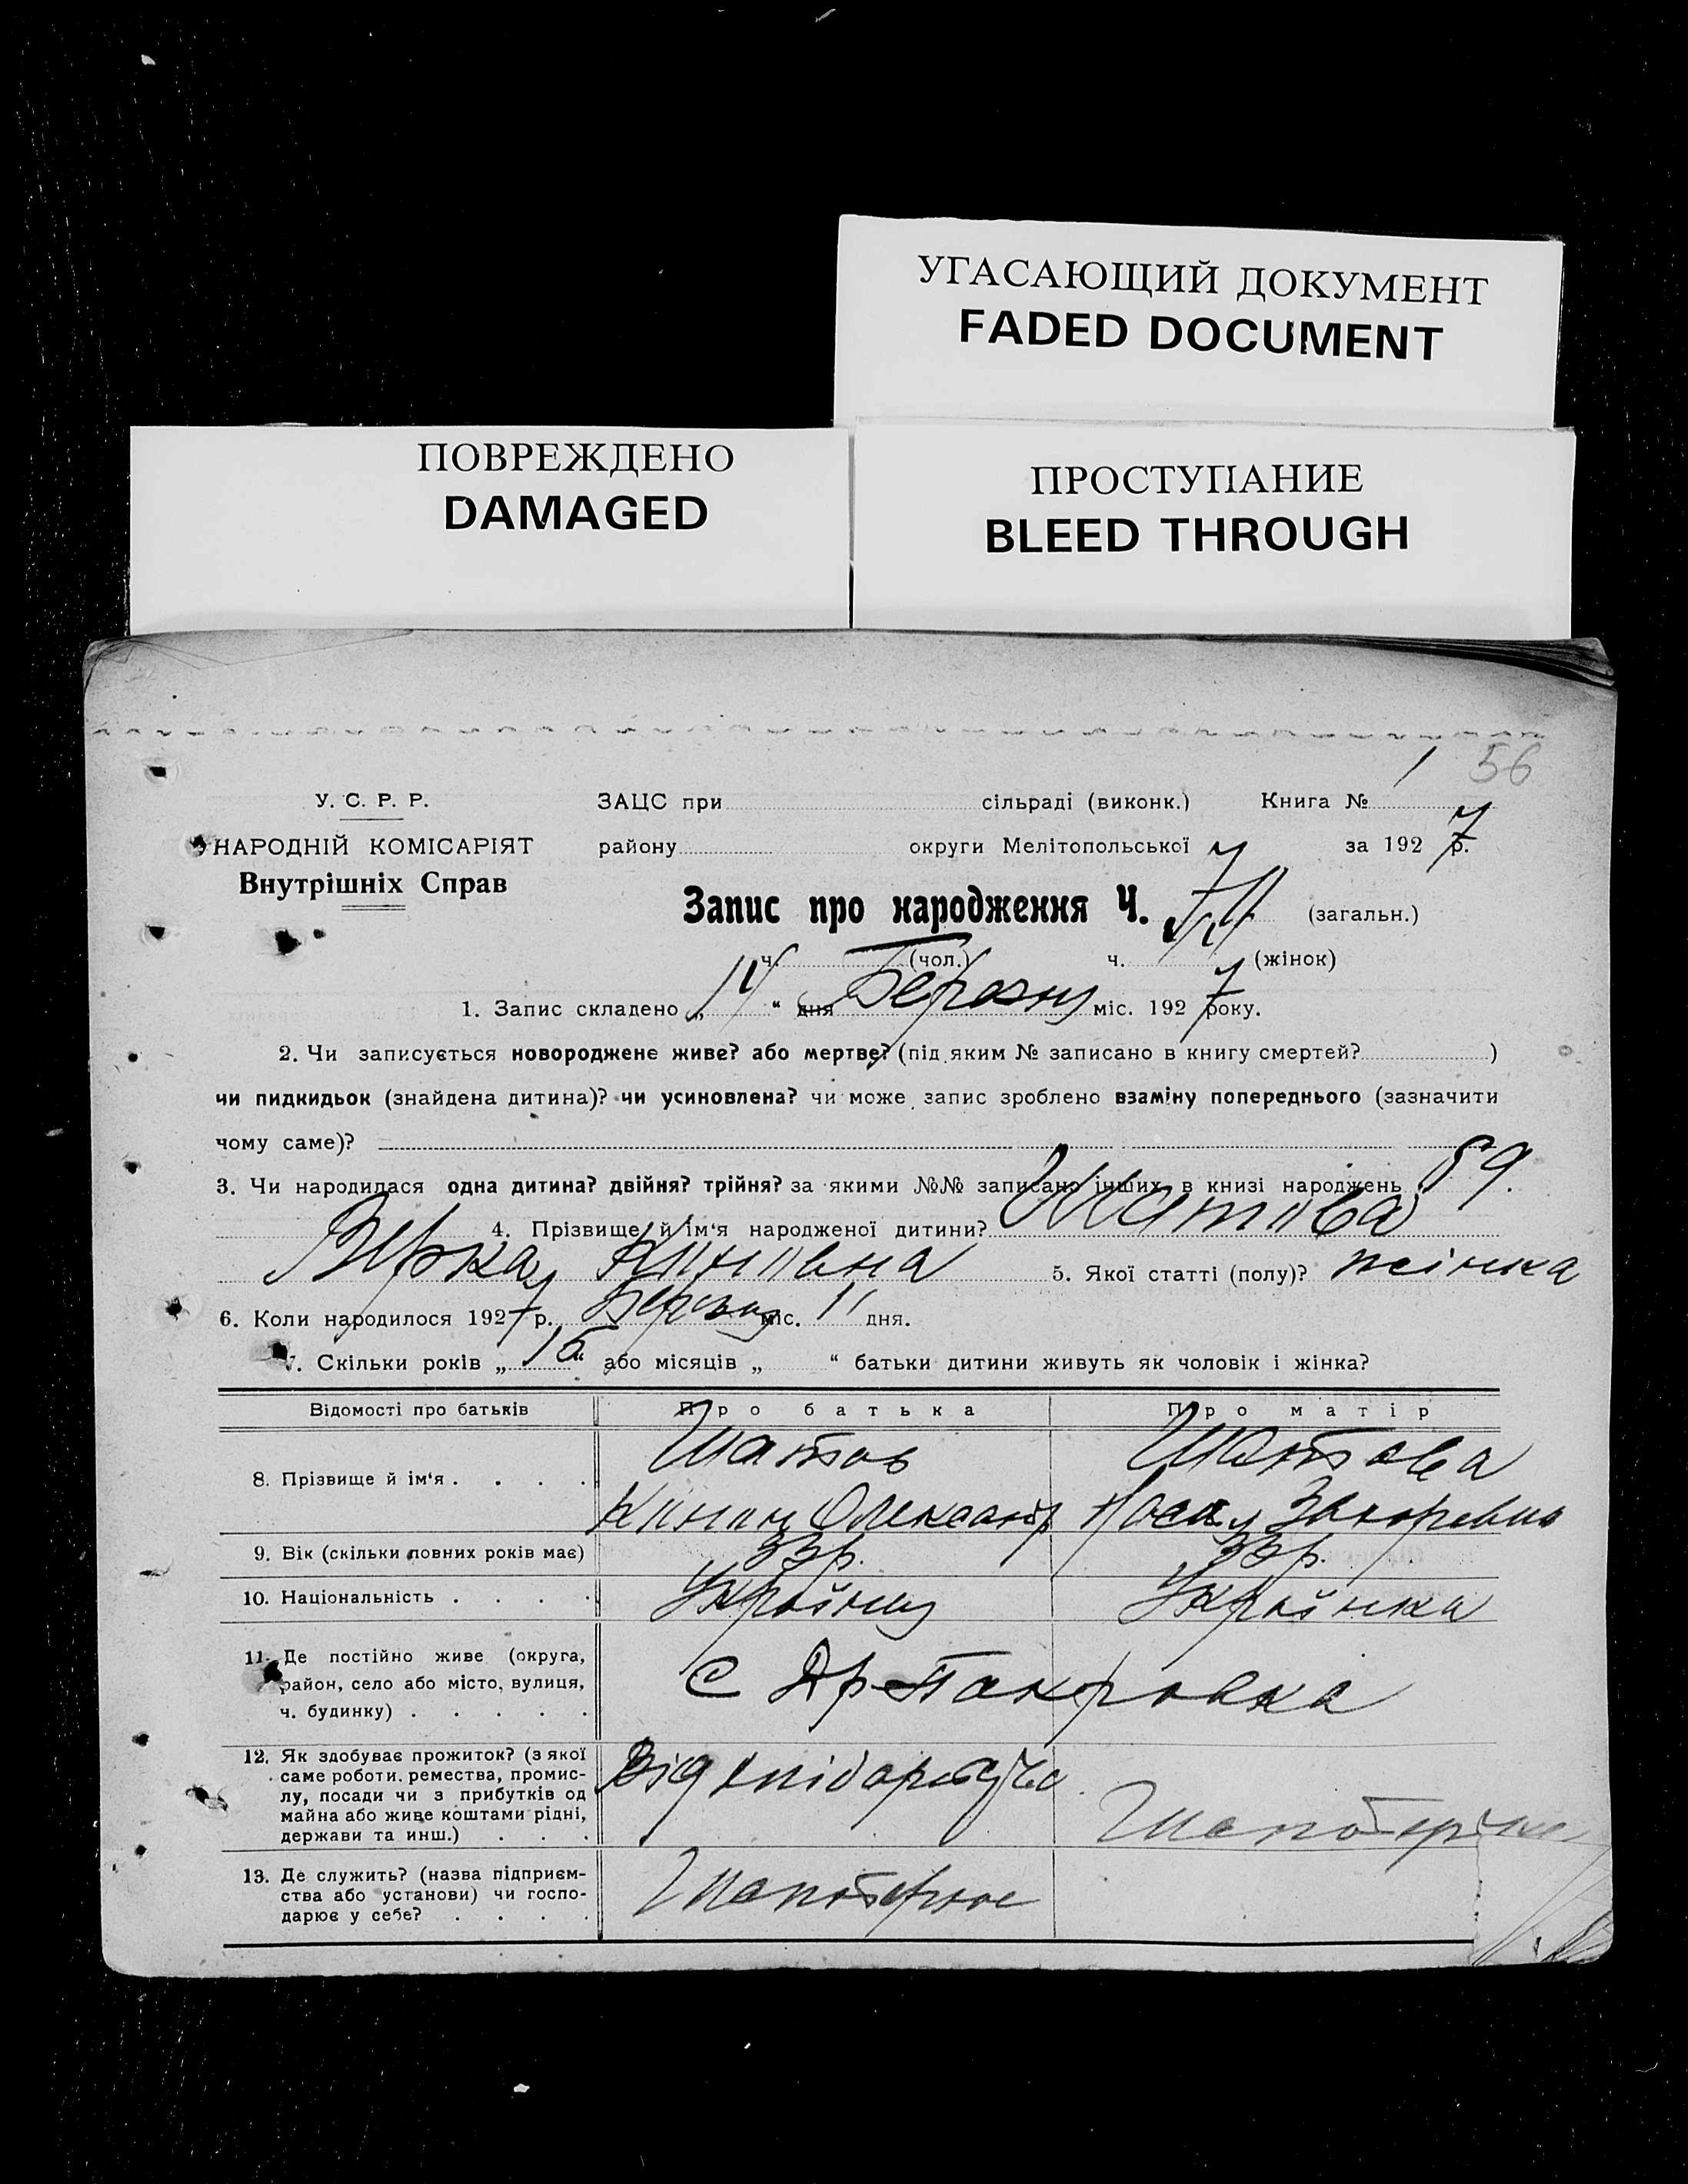 УГАСАЮЩИЙ ДОКУМЕНТ
FADED DOCUMENT
ПОВРЕЖДЕНО
DAMAGED
ПРОСТУПАНИЕ
BLEED THROUGH
1 56
У. С. Р. Р.
НАРОДНІЙ КОМІСАРІЯТ
Внутрішніх Справ
ЗАЦС при сільраді (виконк.) Книга №
району округи Мелітопольської за 1927 р.
Запис про народження Ч. (загальн.)
ч. (чол.) ч. (жінок)
1. Запис складено „14“ дня Березня міс. 1927 року.
2. Чи записується новороджене живе? або мертве? (під яким № записано в книгу смертей? )
чи пидкидьок (знайдена дитина)? чи усиновлена? чи може запис зроблено взаміну попереднього (зазначити
чому саме)?
3. Чи народилася одна дитина? двійня? трійня? за якими №№ записано інших в книзі народжень 59.
4. Прізвище й ім‘я народженої дитини? Шатова
5. Якої статті (полу)? жінка
6. Коли народилося 1927 р. Березня міс. 11 дня.
7. Скільки років „15“ або місяців „ “ батьки дитини живуть як чоловік і жінка?
Відомості про батьків Про батька Про матір
8. Прізвище й ім‘я . . . . . Шатов Шатова
9. Вік (скільки повних років має) 33р. 33р.
10. Національність . . . . Українец Українка
11. Де постійно живе (округа,
район, село або місто, вулиця,
ч. будинку) . . . . .
12. Як здобуває прожиток? (з якої
саме роботи. ремества, промис-
лу, посади чи з прибутків од
майна або живе коштами рідні,
держави та инш.) . . .
13. Де служить? (назва підприєм-
ства або установи) чи госпо-
дарює у себе? . . . .